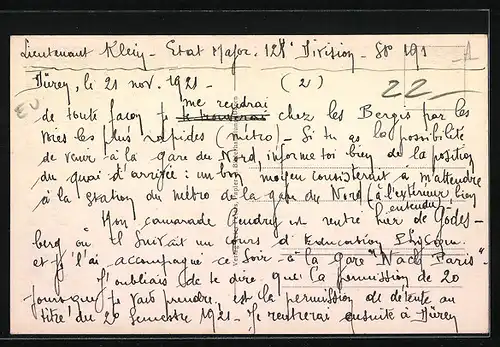 Lieutenant Klein - Etat Major. 128e Division - SP 191
Düren, le 21 nov. 1921 - (2)
22
me rendrai
de toute façon je chez les Bergis par les
voies les plus rapides (métro) - Si tu as la possibilité
de venir à la gare du Nord, informe toi bien de la position
du quai d'arrivée : un bon moyen consisterait à m'attendre
à la station du métro de la gare du Nord (à l'extérieur, bien
entendu)
Mon camarade est rentré hier de Godes-
berg où il suivait un cours d'Education Physique.
et je l'ai accompagné ce soir à la Gare "Nach Paris" -
J'oubliais de te dire que la permission de 20
jours que je vais prendre, est la permission de détente au
titre du 2e semestre 1921 - Je rentrerai ensuite à Düren